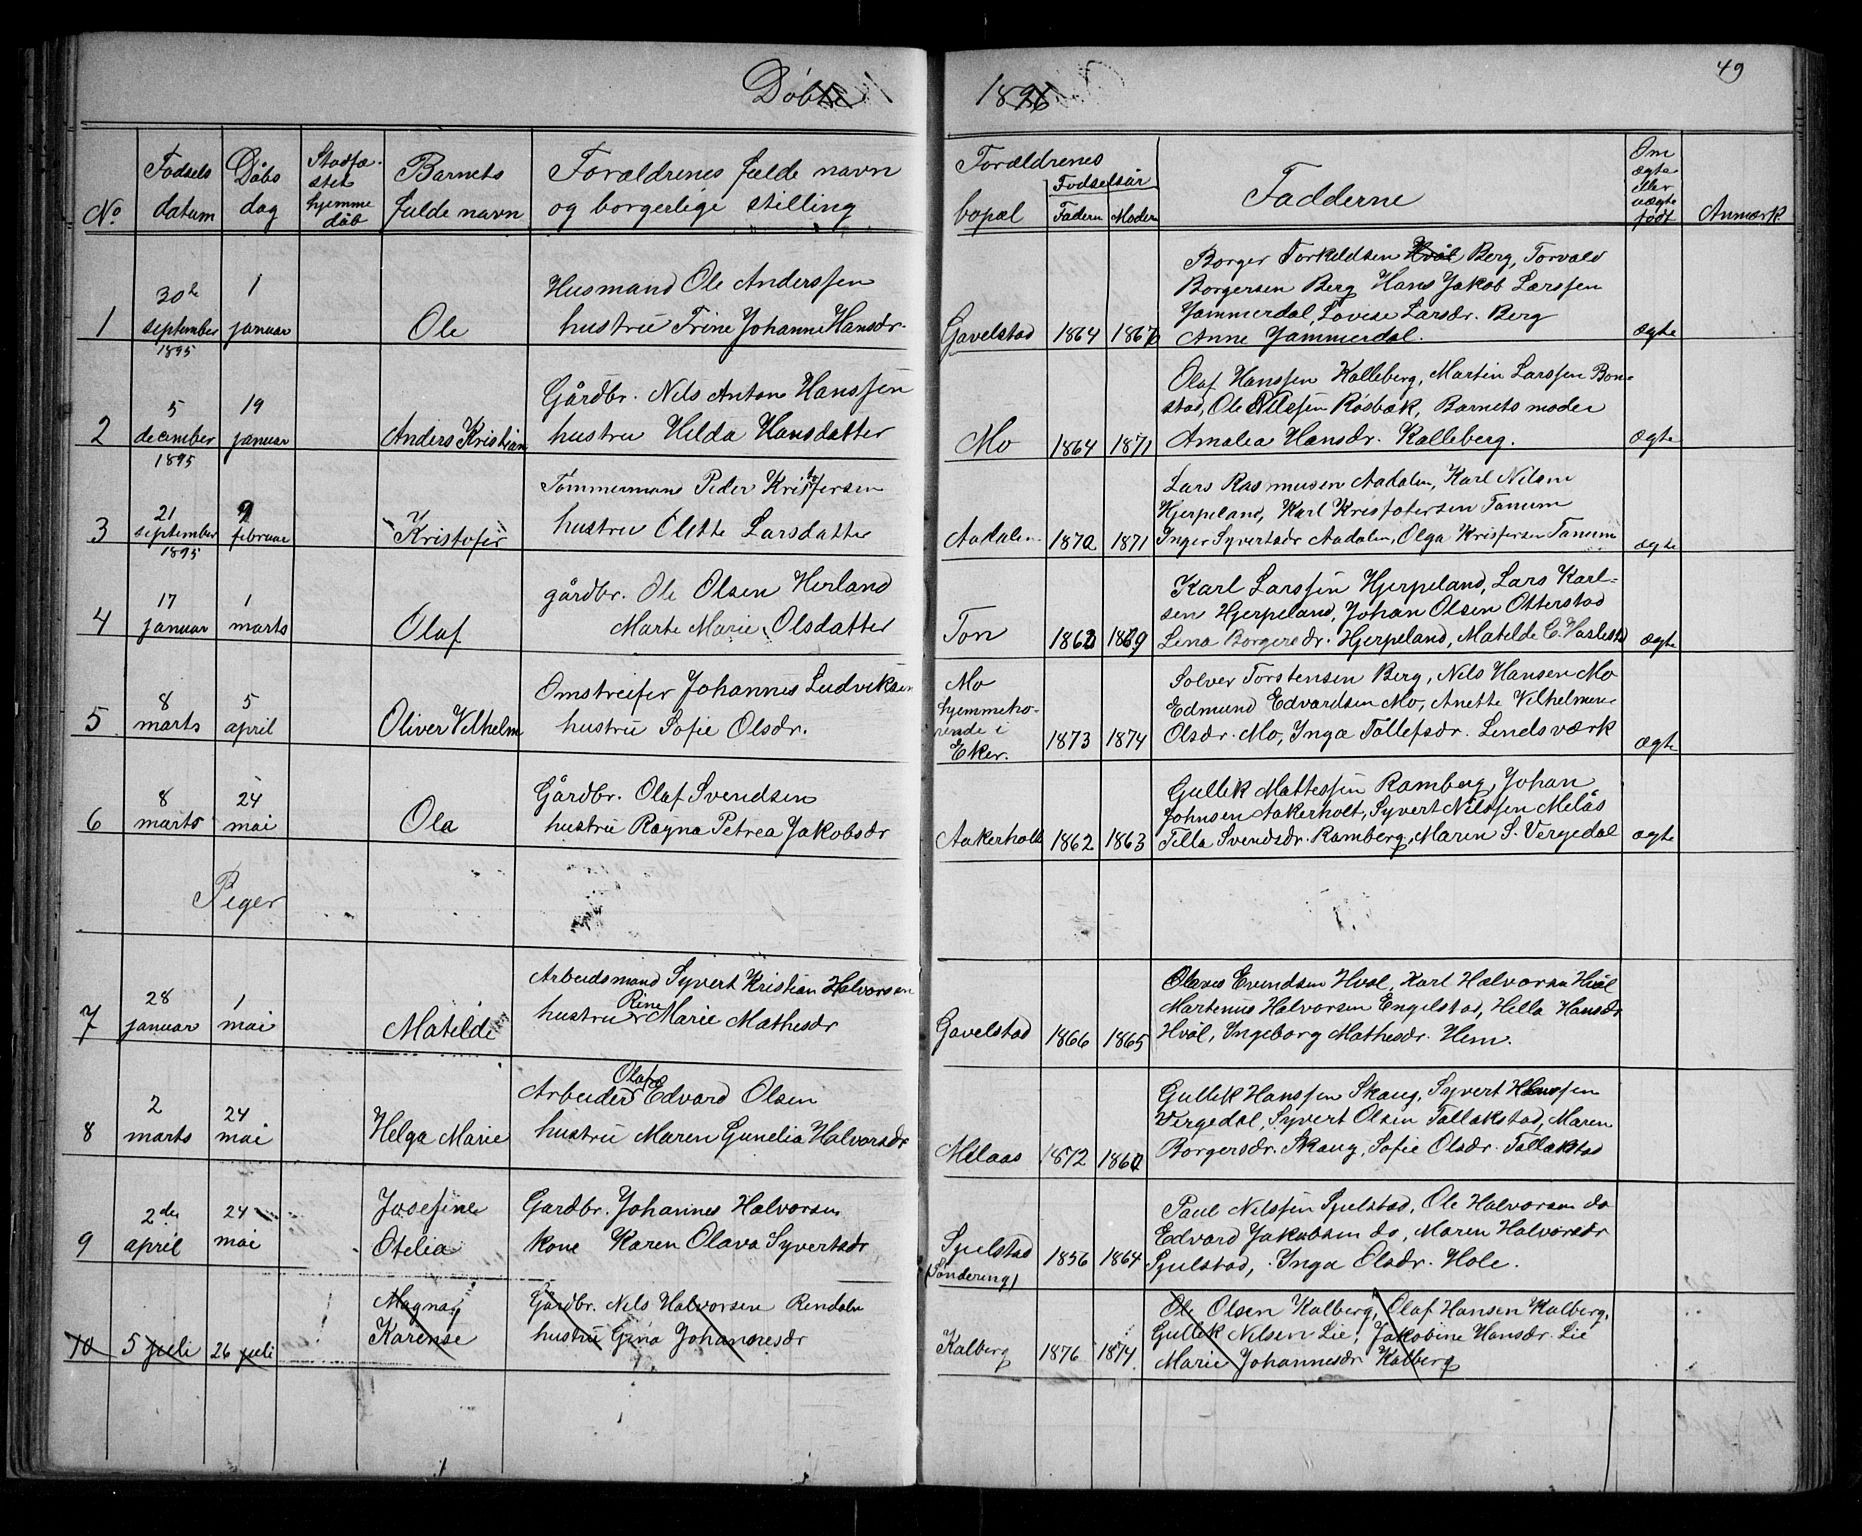 49
Døbte 1896
No.
Fødsels datum
Dåbs dag
Stadfæstet hjemmedåb
Barnets fulde navn
Forældrenes fulde navn og borgerlige stilling
Forældrenes bopæl
Fødselsår
Fadern
Modern
Fadderne
Om ægte eller uægte født
Anmærk.
1
30te september 1895
1 januar
Ole
Husmand Ole Anderssen
hustru Trine Johanne Hansdr.
Gavelstad
1864
1867
Borger Torkildsen Hvål Berg, Torvald
Borgersen Berg Hans Jakob Larssen
Jammerdal, Lovise Larsdr. Berg
Anne Jammerdal.
ægte
2
5 december 1895
19 januar
Anders Kristian
Gårdbr. Nils Anton Hanssen
hustru Hilda Hansdatter
Mo
1864
1871
Olaf Hanssen Kalleberg, Martin Larssen Bon-
stad, Ole Nilssen Røsbæk, Barnets moder
Amalia Hansdr. Kalleberg.
ægte
3
21 september 1895
9 februar
Kristofer
Tømmermand Peder Kristofersen
hustru Olette Larsdatter
Aadalen
1870
1871
Lars Rasmusen Aadalen, Karl Nilsen
Hjerpeland, Karl Kristofersen Tanum
Inger Syvertsdr Aadalen, Olga Kristfersen Tanum
ægte
4
17 januar
1 marts
Olaf
gårdbr. Ole Olsen Herland
Marte Marie Olsdatter
Ton
1869
Karl Larssen Hjerpeland, Lars Karl-
sen Hjerpeland, Johan Olsen Otterstad
Lina Borgersdr. Hjerpeland, Matilde C. Haslestad
ægte
5
8 marts
5 april
Oliver Vilhelm
Omstreifer Johannes Ludviksen
hustru Sofie Olsdr.
Mo
hjemmehø-
rende i
Eker.
1873
1874
Solver Torstensen Berg, Nils Hansen Mo
Edmund Edvardsen Mo, Anette Vilhelmine
Olsdr. Mo, Inga Tollefsdr. Lindsværk
ægte
6
8 marts
24 mai
Ola
Gårdbr. Olaf Svendsen
hustru Ragna Petrea Jakobsdr
Aakerholt
1862
1863
Gullik Mattessen Ramberg, Johan
Johnsen Aakerholt, Syvert Nilssen Melås
Tilla Svendsdr. Ramberg, Maren S. Vergedal
ægte
Piger
7
28 januar
1 mai
Matilde
Arbeidsmand Syvert Kristian Halvorsen
hustru Rine Marie Mathesdr
Gavelstad
1866
1865
Olaves Evendsen Hvål, Karl Halvorsen Hvål
Martenius Halvorsen Engelstad, Hella Hansdr
Hvål, Ingeborg Mathesdr. Hem.
8
2 marts
24 mai
Helga Marie
Arbeider Olaf Edvard Olsen
hustru Maren Gunelia Halvorsdr
Milaas
1872
Gullik Hanssen Skaug, Syvert Hanssen
Vergedal, Syvert Olsen Tallakstad, Maren
Borgersdr. Skaug, Sofie Olsdr. Tallakstad
9
2den april
24 mai
Josefine
Otelia
Gardbr. Johannes Halvorsen
kone Karen Olava Syvertsdr
Sjulstad
(Søndering)
1856
1864
Paul Nilssen Sjulstad, Ole Halvorsen do
Edvard Jakobsen do, Maren Halvorsdr
Sjulstad, Inga Olsdr. Hole.
10
5 juli
26 juli
Magna
Karense
Gårdbr. Nils Halvorsen Rendalen
hustru Gina Johannesdr
Kalberg
1876
1874
Ole Olsen Kalberg, Olaf Hansen Kalberg,
Gullik Nilsen Lie, Jakobine Hansdr. Lie
Marie Johannesdr Kalberg